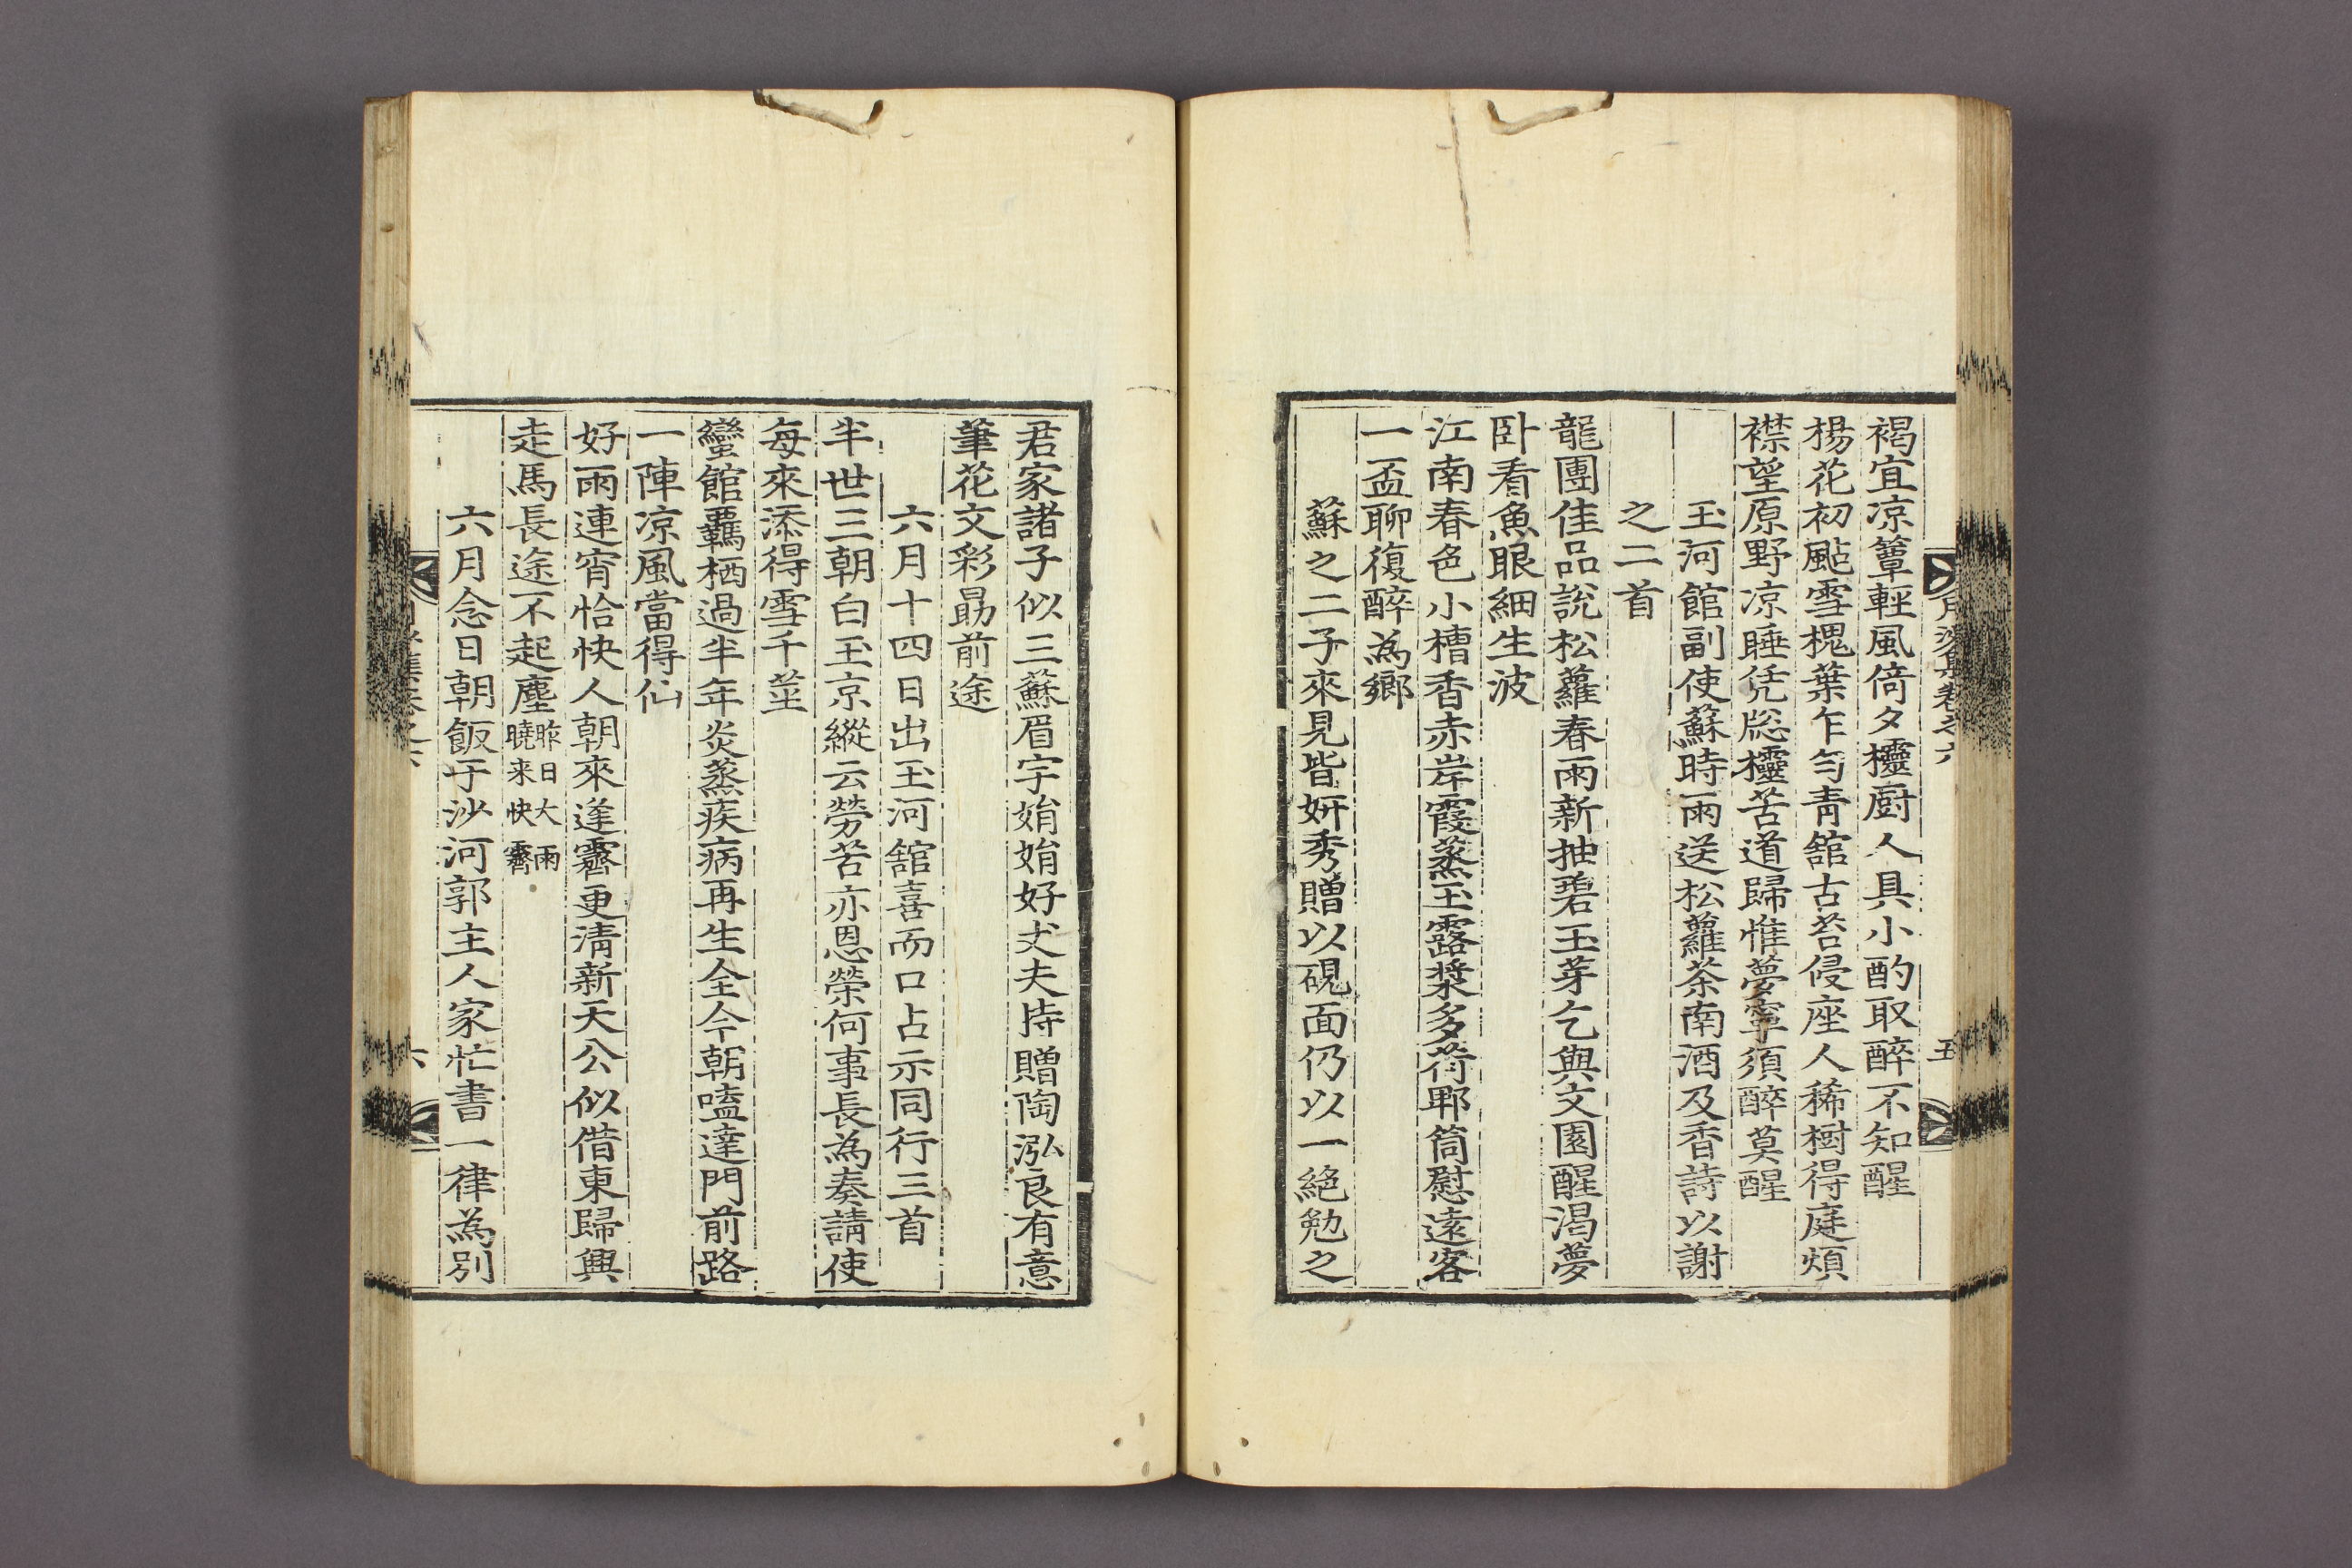 月沙集卷之六
五
褐宜凉簟輕風倚夕欞廚人具小酌取醉不知醒
楊花初颭雪槐葉乍勻靑舘古苔侵座人稀樹得庭煩
襟望原野凉睡凭牎欞苦道歸惟夢寧須醉莫醒
玉河館副使蘇時雨送松蘿茶南酒及香詩以謝
之二首
龍團佳品說松蘿春雨新抽碧玉芽乞與文園醒渴夢
卧看魚眼細生波
江南春色小槽香赤岸霞蒸玉露漿多荷郫筒慰遠客
一盃聊復醉為鄉
蘇之二子來見皆妍秀贈以硯面仍以一絕勉之
君家諸子似三蘇眉宇娟娟好丈夫持贈陶泓良有意
筆花文彩勗前途
六月十四日出玉河舘喜而口占示同行三首
半世三朝白玉京縱云勞苦亦恩榮何事長為奏請使
每來添得雪千莖
蠻館羈栖過半年炎蒸疾病再生全今朝嗑達門前路
一陣凉風當得仙
好雨連宵恰快人朝來逢霽更淸新天公似借東歸興
走馬長途不起塵昨日大雨曉来快霽
六月念日朝飯于沙河郭主人家忙書一律為別
月沙集卷之六
六